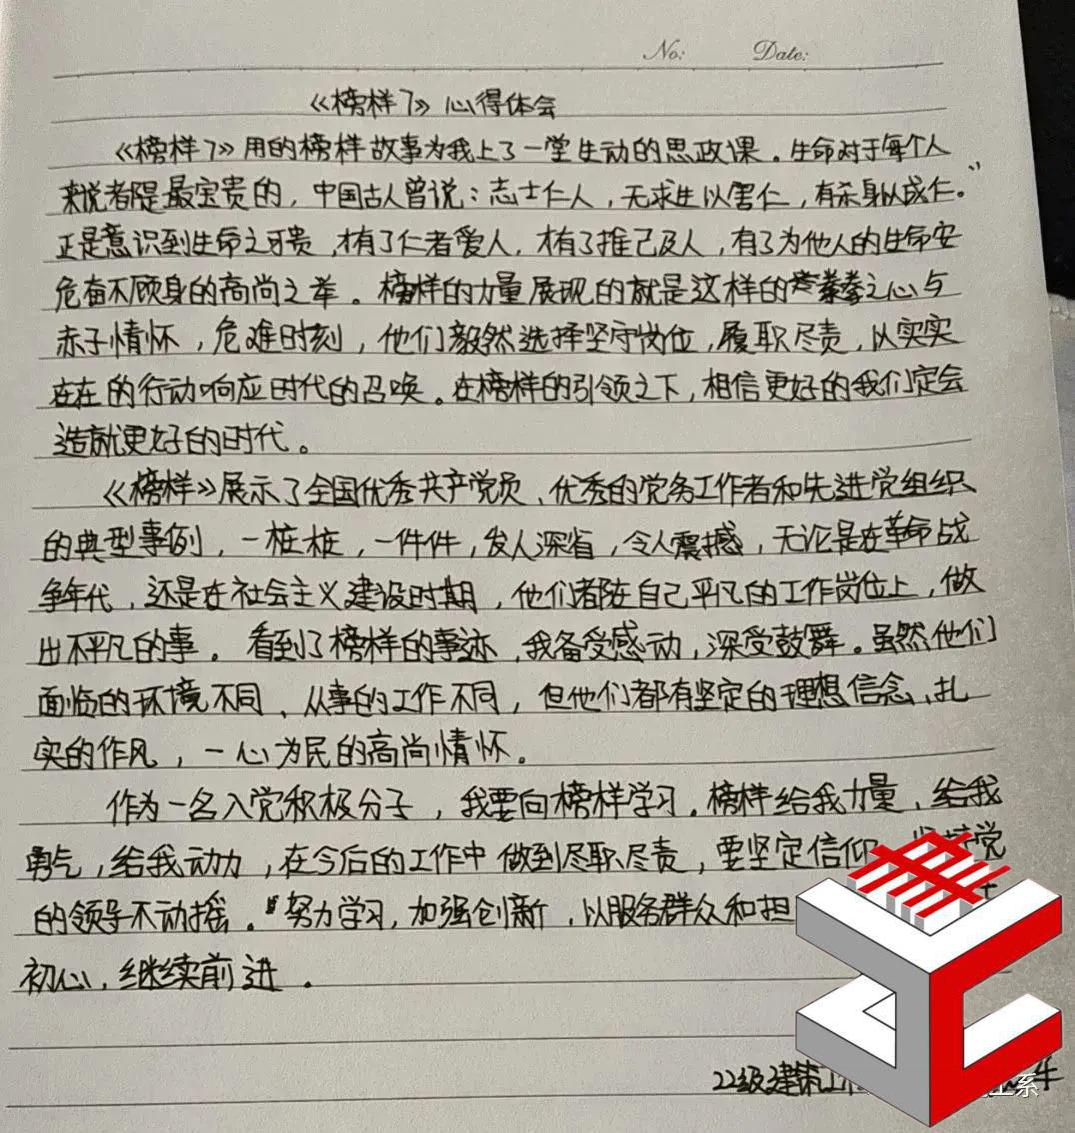 No: Date:
《榜样7》心得体会
《榜样7》用的榜样故事为我上了一堂生动的思政课。生命对于每个人
来说都是最宝贵的，中国古人曾说：志士仁人，无求生以害仁，有杀身以成仁。”
正是意识到生命之可贵，才有了仁者爱人，才有了推己及人，有了为他人的生命安
危奋不顾身的高尚之举。榜样的力量展现的就是这样的拳拳之心与
赤子情怀，危难时刻，他们毅然选择坚守岗位，履职尽责，以实实
在在的行动响应时代的召唤。在榜样的引领之下，相信更好的我们定会
造就更好的时代。
《榜样》展示了全国优秀共产党员、优秀的党务工作者和先进党组织
的典型事例，一桩桩，一件件，发人深省，令人震撼，无论是在革命战
争年代，还是在社会主义建设时期，他们都在自己平凡的工作岗位上，做
出不平凡的事。看到了榜样的事迹，我备受感动，深受鼓舞。虽然他们
面临的环境不同、从事的工作不同，但他们都有坚定的理想信念、扎
实的作风，一心为民的高尚情怀。
作为一名入党积极分子，我要向榜样学习。榜样给我力量，给我
勇气，给我动力，在今后的工作中做到尽职尽责，要坚定信仰 党
的领导不动摇。努力学习，加强创新，以服务群众和担
初心，继续前进。
22级建筑工 系